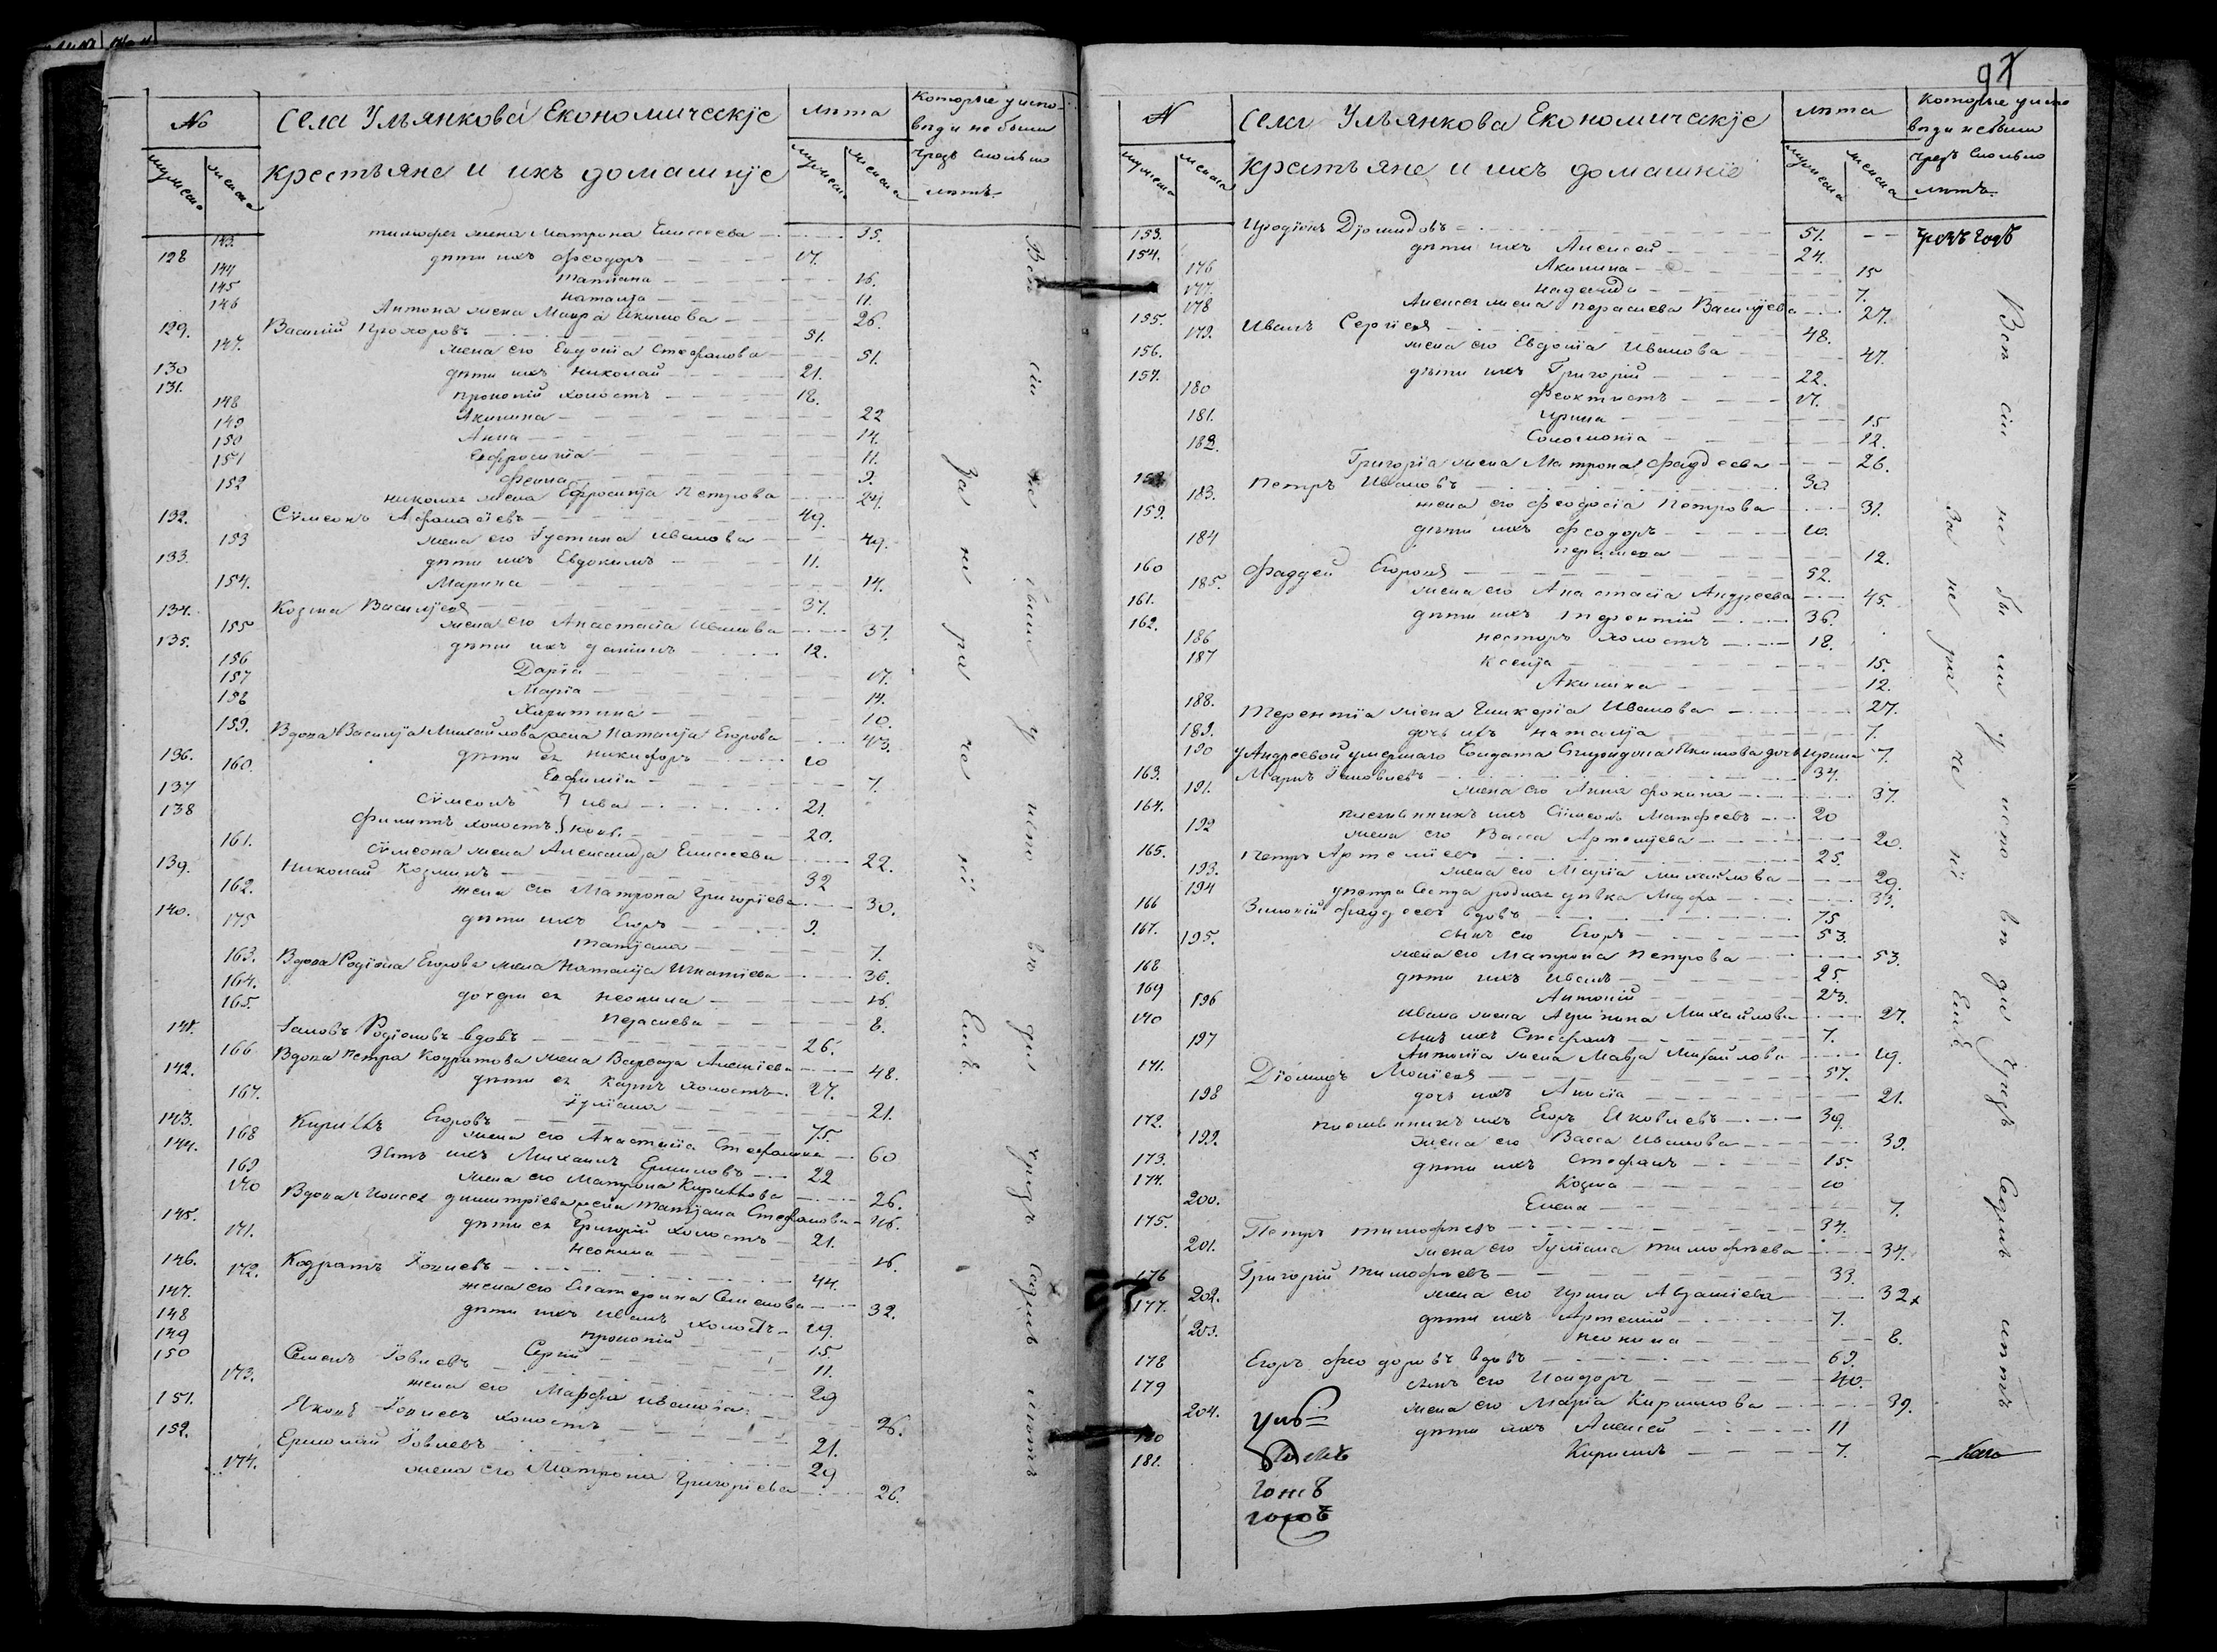 №
Села Ульянкова Економическіе
крестьяне и ихъ домашніе
лѣта
которые у испо-
вѣди не были
чрезъ сколько
лѣтъ.
мужеска
женска
мужеска
женска
143. Тимофея жена Матрона Елисеева 35.
128 дѣти ихъ Феодоръ 17.
144 Татиана 16.
145 Наталіа 11.
146 Антона жена Мавра Акимова 26.
129. Василій Прохоровъ 51.
147. жена его Евдокіа Стефанова 51.
130 дѣти ихъ Николай 21.
131. Прокопій холостъ 18.
148 Акилина 22
149 Анна 14.
150 Евфросиніа 11.
151 Фекла 9.
152 Николая жена Ефросиніа Петрова 24.
132. Сѵмеонъ Афанасіевъ 49.
153 жена его Іустина Иванова 49.
133. дѣти ихъ Евдокимъ 11.
154. Марина 14.
134. Козма Василіевъ 37.
155 жена его Анастасіа Иванова 37.
135. дѣти ихъ Даніилъ 12.
156 Даріа 17.
157 Маріа 14.
158 Харитина 10.
159. Вдова Василіа Михайлова жена Наталіа Егорова 43.
136. дѣти ея Никифоръ 10
160. Евфиміа 7.
137 Сѵмеонъ 21.
138 Филиппъ холостъ 20.
161. Сѵмеона жена Александра Елисеева 22.
139. Николай Козминъ 32
162. жена его Матрона Григоріева 30.
140. дѣти ихъ Егоръ 9.
175 Татіана 7.
163. Вдова Родіона Егорова жена Наталіа Игнатіева 36.
164. дочери ея Неонила 16.
165. Парасковa 8.
141. Іаковъ Родіоновъ вдовъ 26.
166 Вдова Петра Кодратова жена Варвара Алексіева 48.
142. дѣти ея Карпъ холостъ 27.
167. Іуліана 21.
143. Кириллъ Егоровъ 75.
168 жена его Анастасіа Стефанова 60
144. Зять ихъ Михаилъ Ермиловъ 22
169 жена его Матрона Кириллова 26.
170 Вдова Моисея Димитріева жена Татіана Стефанова 46.
145. дѣти ея Григорій холостъ 21.
171. Неонила 16.
146. Кодратъ Іовлевъ 44.
172. жена его Екатерина Семенова 32.
147. дѣти ихъ Иванъ холостъ 19.
148 Прокопій 15
149 Сергій 11.
150 Семенъ Іовлевъ 29
173. жена его Марфа Иванова 26.
151. Яковъ Іовлевъ холостъ 21.
152. Ермолай Іовлевъ 29
174. жена его Матрона Григоріева 26.
Всѣ сіи не были у исповѣди чрезъ седмь лѣтъ
За нераченіемъ.
97
№
Села Ульянкова Економическіе
крестьяне и ихъ домашніе
лѣта
которые у испо
вѣди не были
чрезъ сколько
лѣтъ.
мужеска
женска
мужеска
женска
153. Иродіонъ Діомидовъ 51. чрезъ годъ
154. дѣти ихъ Алексей 24.
176 Акилина 15
177. Надежда 7.
178 Алексея жена Парасковa Василіева 27.
155. Иванъ Сергіевъ 48.
179. жена его Евдокіа Иванова 47.
156. дѣти ихъ Григорій 22.
157. Феоктистъ 17.
180 Ирина 15
181. Соломоніа 12.
182. Григоріа жена Матрона Фаддеева 26.
158 Петръ Ивановъ 30
183. жена его Феодосіа Петрова 31.
159. дѣти ихъ Феодоръ 10.
184 12.
160 Фаддей Егоровъ 52.
185. жена его Анастасіа Андреева 45.
161. дѣти ихъ Терентій 36.
162. Несторъ холостъ 18.
186 Ксеніа 15.
187 Акилина 12.
188. Терентіа жена Гликеріа Иванова 27.
189. дочь ихъ Наталіа 7.
190 у Андреевой умершаго солдата Спиридона Якимова дочь Ирина 7.
163. Маркъ Іаковлевъ 37.
191. жена его Анна Фокина 37.
164. племянникъ ихъ Сѵмеонъ Матфеевъ 20
192 жена его Васса Артеміева 20.
165. Петръ Артеміевъ 25.
193. жена его Маріа Михайлова 29.
194 у Петра сестра родная дѣвка Марфа 33.
166 Зиновій Фаддеевъ вдовъ 75
167. сынъ его Егоръ 53.
195. жена его Матрона Петрова 53.
168 дѣти ихъ Иванъ 25.
169 Антоній 23.
196 Ивана жена Агрипина Михайлова 27.
170 сынъ ихъ Стефанъ 7.
197 Антоніа жена Мавра Михайлова 19.
171. Діомидъ Моисеевъ 57.
198 дочь ихъ Анисіа 21.
172. племянникъ ихъ Егоръ Яковлевъ 39.
199. жена его Васса Иванова 39.
173. дѣти ихъ Стефанъ 15.
174. Козма 10
200. Елена 7.
175. Петръ Тимофеевъ 34.
201. жена его Іуліана Тимофеева 34.
176 Григорій Тимофеевъ 33.
202. жена его Ирина 32
177. дѣти ихъ Артемій 7.
203. Неонила 8.
178 Егоръ Феодоровъ вдовъ 69.
179 сынъ его Исидоръ 40.
204. жена его Маріа Кириллова 39.
180 дѣти ихъ Алексей 11
181. Кириллъ 7.
Всѣ сіи не были у исповѣди чрезъ седмь лѣтъ
За нераченіемъ